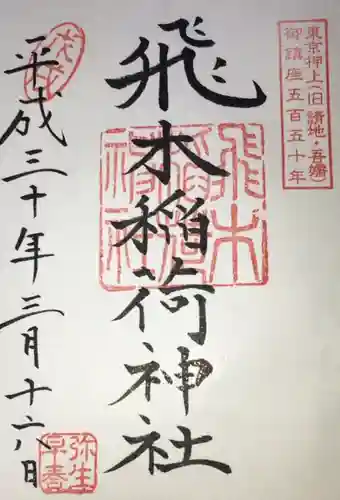 東京押上(旧 請地・吾嬬)
御鎮座五百五十年
飛木稲荷神社
飛木稲荷神社
平成三十年三月十六日
弥生
早春